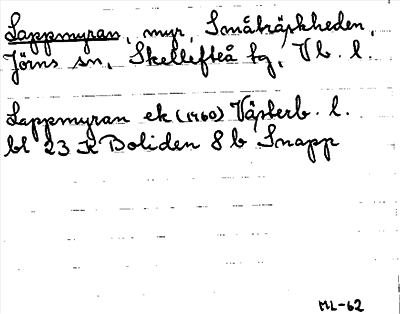 Lappmyran, myr, Småträskheden,
Jörns sn, Skellefteå tg, Vb. l.
Lappmyran ek (1960) Västerb. l.
bl 23 K Boliden 8 b Snapp
ML-62